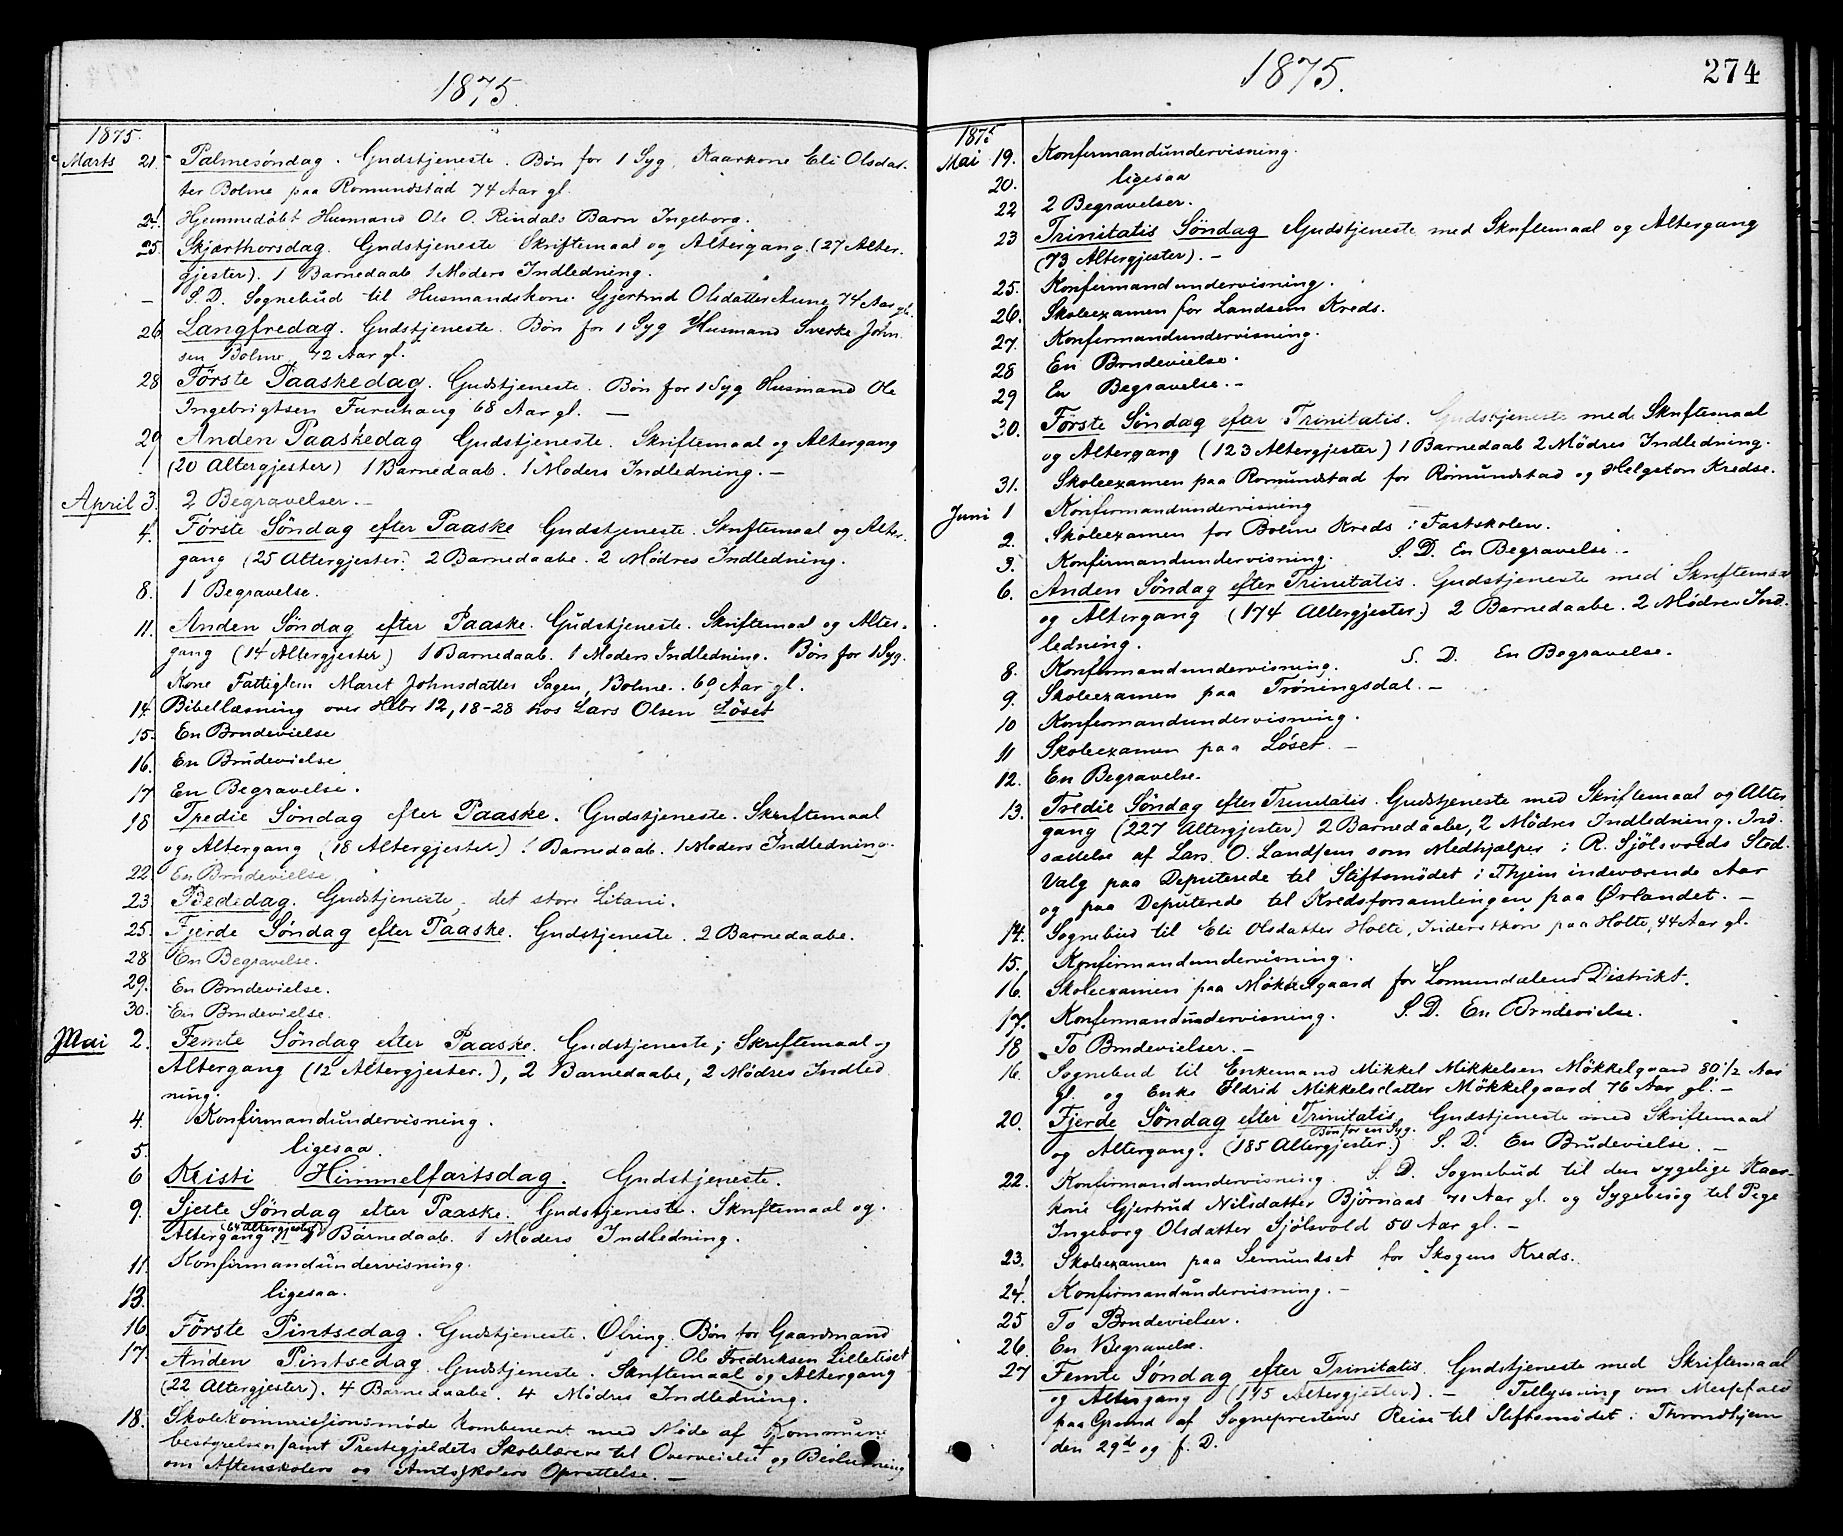 1875.
1875.
Marts 21. Palmesöndag. Gudstjeneste. Bön for 1 Syg, Kaarkone Eli Olsdat-
ter Bolme paa Romundstad 74 Aar gl.
24. Hjemmedöbt Husmand Ole O. Rindals Barn Ingeborg.
25. Skjærthorsdag. Gudstjeneste Skriftemaal og Altergang. (27 Alter-
gjester). 1 Barnedaab 1 Moders Indledning.
– S. D. Sognebud til Husmandskone Gjertrud Olsdatter Aune 74 Aar gl.
26. Langfredag. Gudstjeneste. Bön for 1 Syg Husmand Sverke John
sen Bolme 72 Aar gl.
28 Förste Paaskedag. Gudstjeneste. Bön for 1 Syg Husmand Ole
Ingebrigtsen Furuhaug 68 Aar gl. —
29 Anden Paaskedag Gudstjeneste. Skriftemaal og Altergang
(20 Altergjester) 1 Barnedaab. 1 Moders Indledning. —
April 3. 2 Begravelser. —
4. Förste Söndag efter Paaske Gudstjeneste. Skriftemaal og Alter-
gang (25 Altergjester. 2 Barnedaabe. 2 Mödres Indledning.
8. 1 Begravelse.
11. Anden Söndag efter Paaske. Gudstjeneste. Skriftemaal og Alter-
gang (14 Altergjester) 1 Barnedaab. 1 Moders Indledning. Bön for 1 Syg.
Kone Fattiglem Maret Johnsdatter Sagen, Bolme. 60 Aar gl.
14. Bibellæsning over Hebr 12, 18-28 hos Lars Olsen Löset
15. En Brudevielse
16. En Brudevielse
17 En Begravelse.
18 Tredie Söndag efter Paaske. Gudstjeneste. Skriftemaal
og Altergang (18 Altergjester) 1 Barnedaab. 1 Moders Indledning.
22. En Brudevielse
23. Bededag. Gudstjeneste, det store Litani.
25. Fjerde Söndag efter Paaske. Gudstjeneste. 2 Barnedaabe.
28 En Begravelse.
29. En Brudevielse.
30. En Brudevielse.
Mai 2. Femte Söndag efter Paaske. Gudstjeneste; Skriftemaal og
Altergang (12 Altergjester.), 2 Barnedaabe, 2 Mödres Indled
ning.
4. Konfirmandundervisning.
5. ligesaa.
6 Kristi Himmelfartsdag. Gudstjeneste.
9. Sjette Söndag efter Paaske. Gudstjeneste. Skriftemaal og.
(64 Altergjester)
Altergang. 1 Barnedaab. 1 Moders Indledning.
11. Konfirmandundervisning.
13. ligesaa.
16. Förste Pintsedag. Gudstjeneste. Ofring. Bön for Gaardmand
Ole Fredriksen Lilletiset
17. Anden Pintsedag. Gudstjeneste. Skriftemaal og Altergang
(22 Altergjester). 4 Barnedaabe. 4 Mödres Indledning.
18. Skolekommissjonsmöde kombeneret med Möde af Kommune
bestyrelsen samt Prestegjeldets Skolelærere til Overveielse og Beslutning
om Aftenskolers og Amtsskolers Oprettelse. —
1875.
274
1875
Mai 19. Konfirmandundervisning.
20. ligesaa
22 2 Begravelser.
23 Trinitatis Söndag Gudstjeneste med Skriftemaal og Altergang
(73 Altergjester). —
25. Konfirmandundervisning.
26. Skoleexamen for Landsem Kreds.
27. Konfirmandundervisning.
28 En Brudevielse.
29 En Begravelse. —
30. Förste Söndag efter Trinitatis. Gudstjeneste med Skriftemaal
og Altergang (123 Altergjester) 1 Barnedaab 2 Mödres Indledning.
31. Skoleexamen paa Romundstad for Romundstad og Helgeton Kredse.
Juni 1 Konfirmandundervisning
2. Skoleexamen for Bolme Kreds i Fastskolen.
3. Konfirmandundervisning. S. D. En Begravelse. —
6. Anden Söndag efter Trinitatis. Gudstjeneste med Skriftemaal
og Altergang (174 Altergjester.) 2 Barnedaabe. 2 Mödres Ind-
ledning.
8. Konfirmandundervisning. S. D. En Begravelse.
9. Skoleexamen paa Tröningsdal. —
10 Konfirmandundervisning.
11 Skoleexamen paa Löset. —
12. En Begravelse.
13. Tredie Söndag efter Trinitatis. Gudstjeneste med Skriftemaal og Alter
gang (227 Altergjester) 2 Barnedaabe, 2 Mödres Indledning. Ind-
sættelse af Lars O. Landsem som Medhjælper i R. Sjölsvolds Sted.
Valg paa Deputerede til Stiftsmödet i Thjem indeværende Aar
og paa Deputerede til Kredsforsamlingen paa Ørlandet. —
14. Sognebud til Eli Olsdatter Holte, Inderstkone paa Holte, 44 Aar gl.
15. Konfirmandundervisning.
16. Skoleexamen paa Mökkelgaard for Lomundalens Distrikt.
17. Konfirmandundervisning. S. D. En Brudevielse.
18 To Brudevielser. —
16. Sognebud til Enkemand Mikkel Mikkelsen Mökkelgaard 80 1/2 Aar
gl. og Enke Eldrid Mikkelsdatter Mökkelgaard 76 Aar gl. —
20. Fjerde Söndag efter Trinitatis. Gudstjeneste med Skriftemaal
Bön for en Syg.
og Altergang. (185 Altergjester.) S. D. En Brudevielse. —
22. Konfirmandundervisning. S. D. Sognebud til den sygelige Kaar-
kone Gjertrud Nilsdatter Björnaas 71 Aar gl. og Sygebesög til Pige
Ingeborg Olsdatter Sjölsvold 50 Aar gl. —
23. Skoleexamen paa Semundset for Skogens Kreds.
24. Konfirmandundervisning. —
25 To Brudevielser.
26. En Begravelse.
27 Femte Söndag efter Trinitatis. Gudstjeneste med Skriftemaal
og Altergang (115 Altergjester). — Tillysning om Messefald
paa Grund af Sogneprestens Reise til Stiftsmödet i Throndhjem
den 29de og f. D.